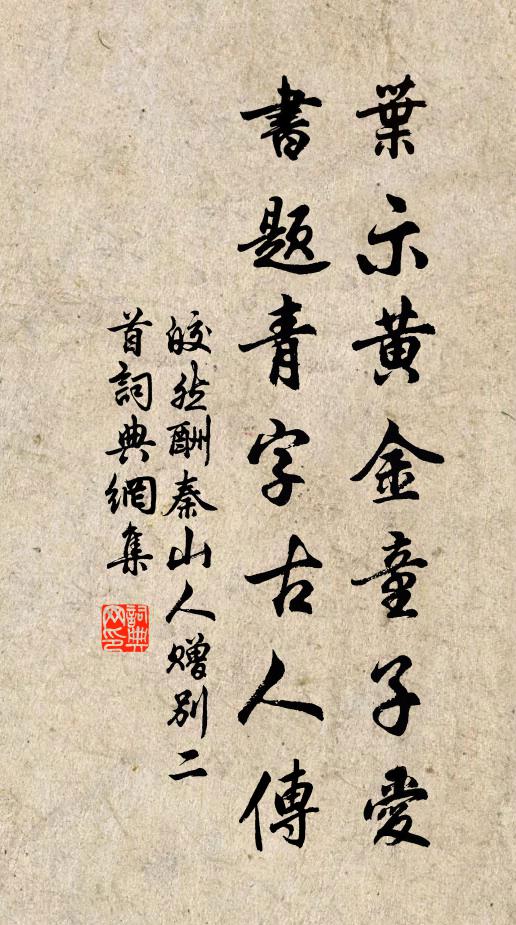 葉示黄金童子愛
書题青字古人傳
皎然酬秦山人赠别二
首詞典網集
詞典
网印